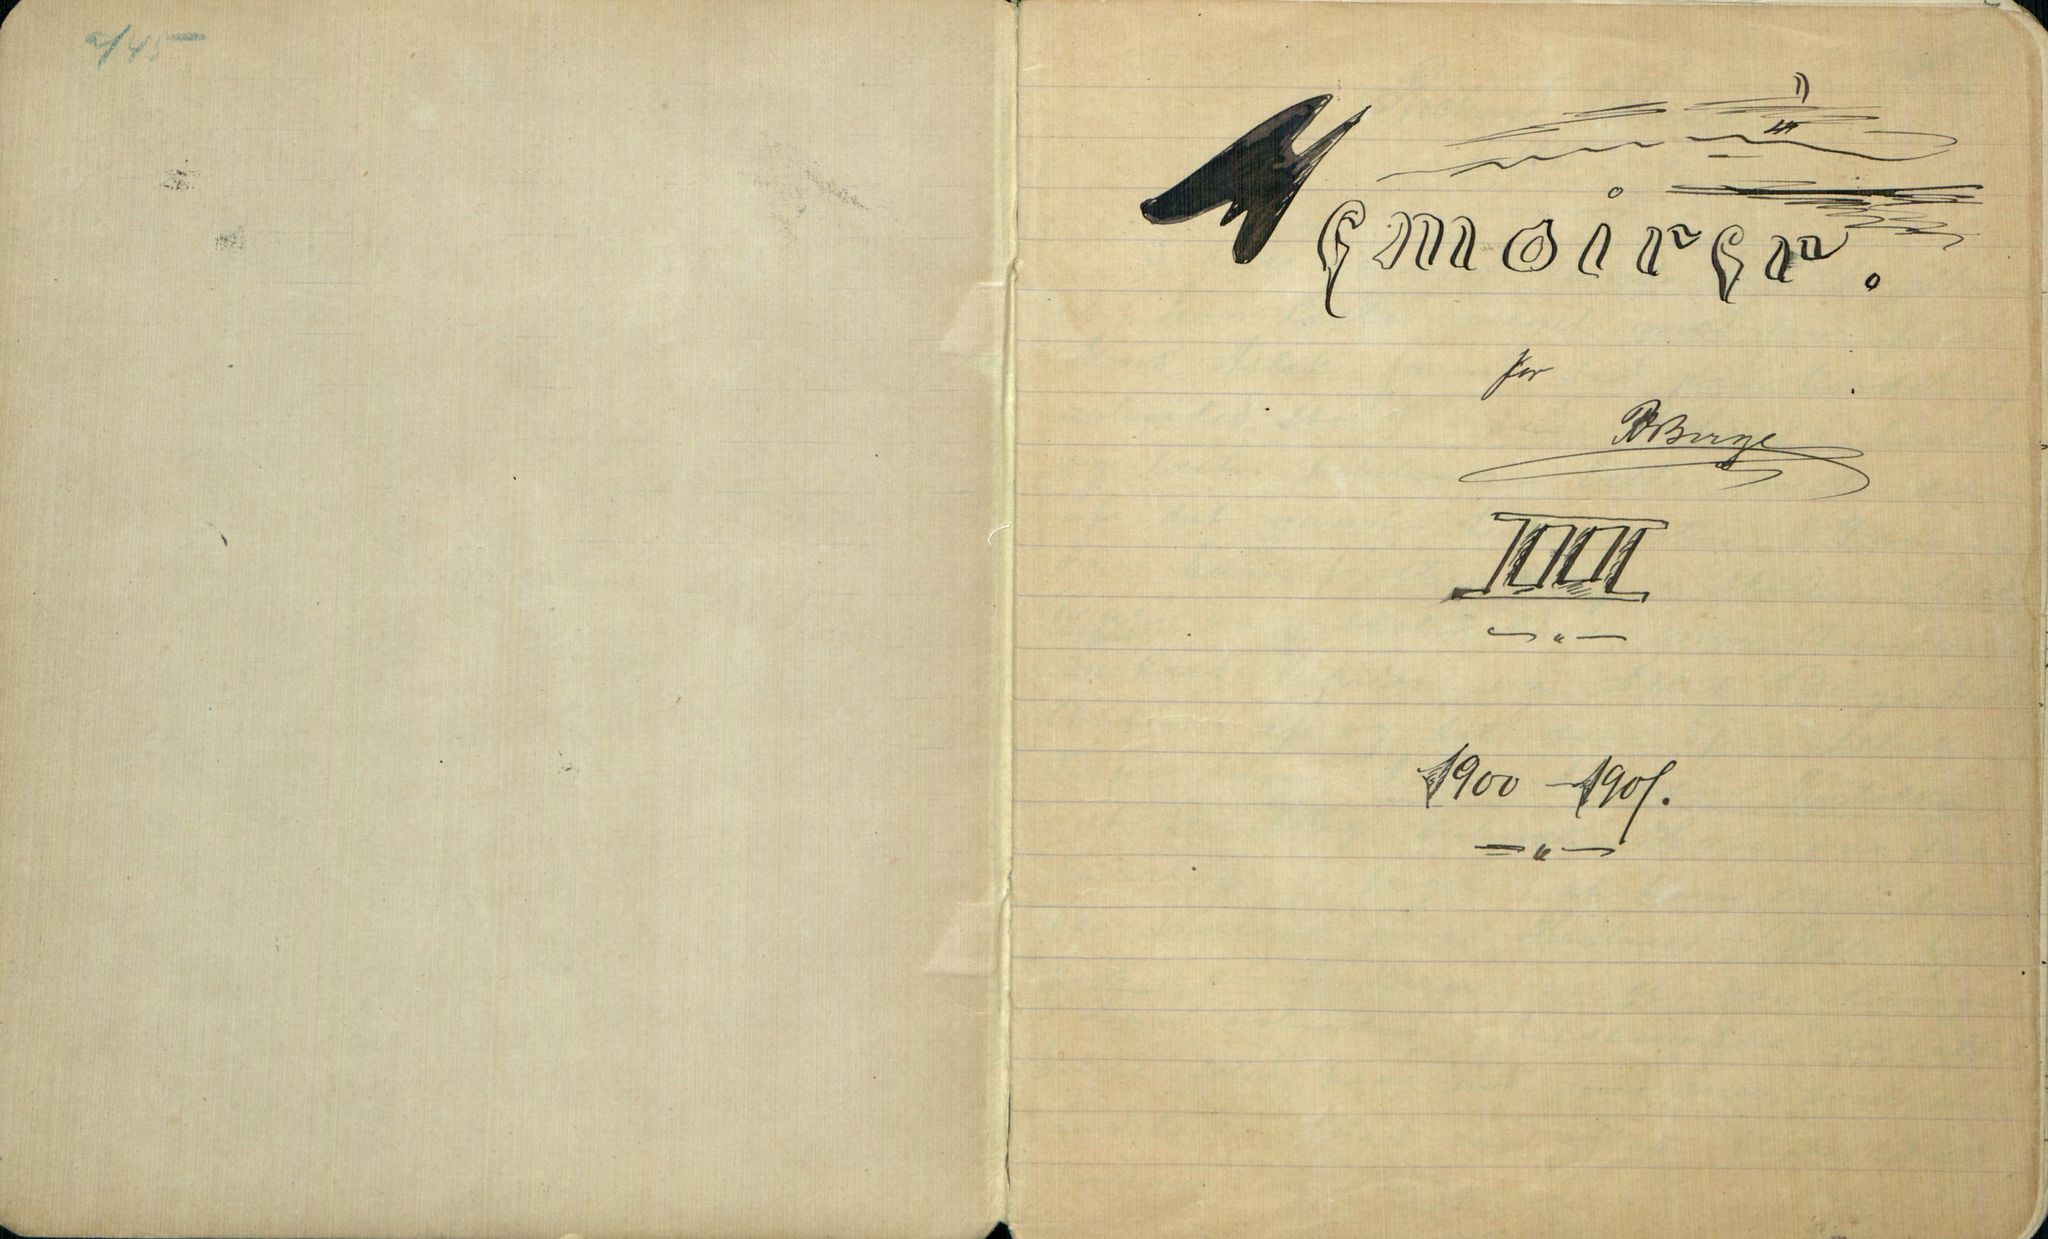 Memoirer.
for
RBerge
IIII
1900 – 1901.